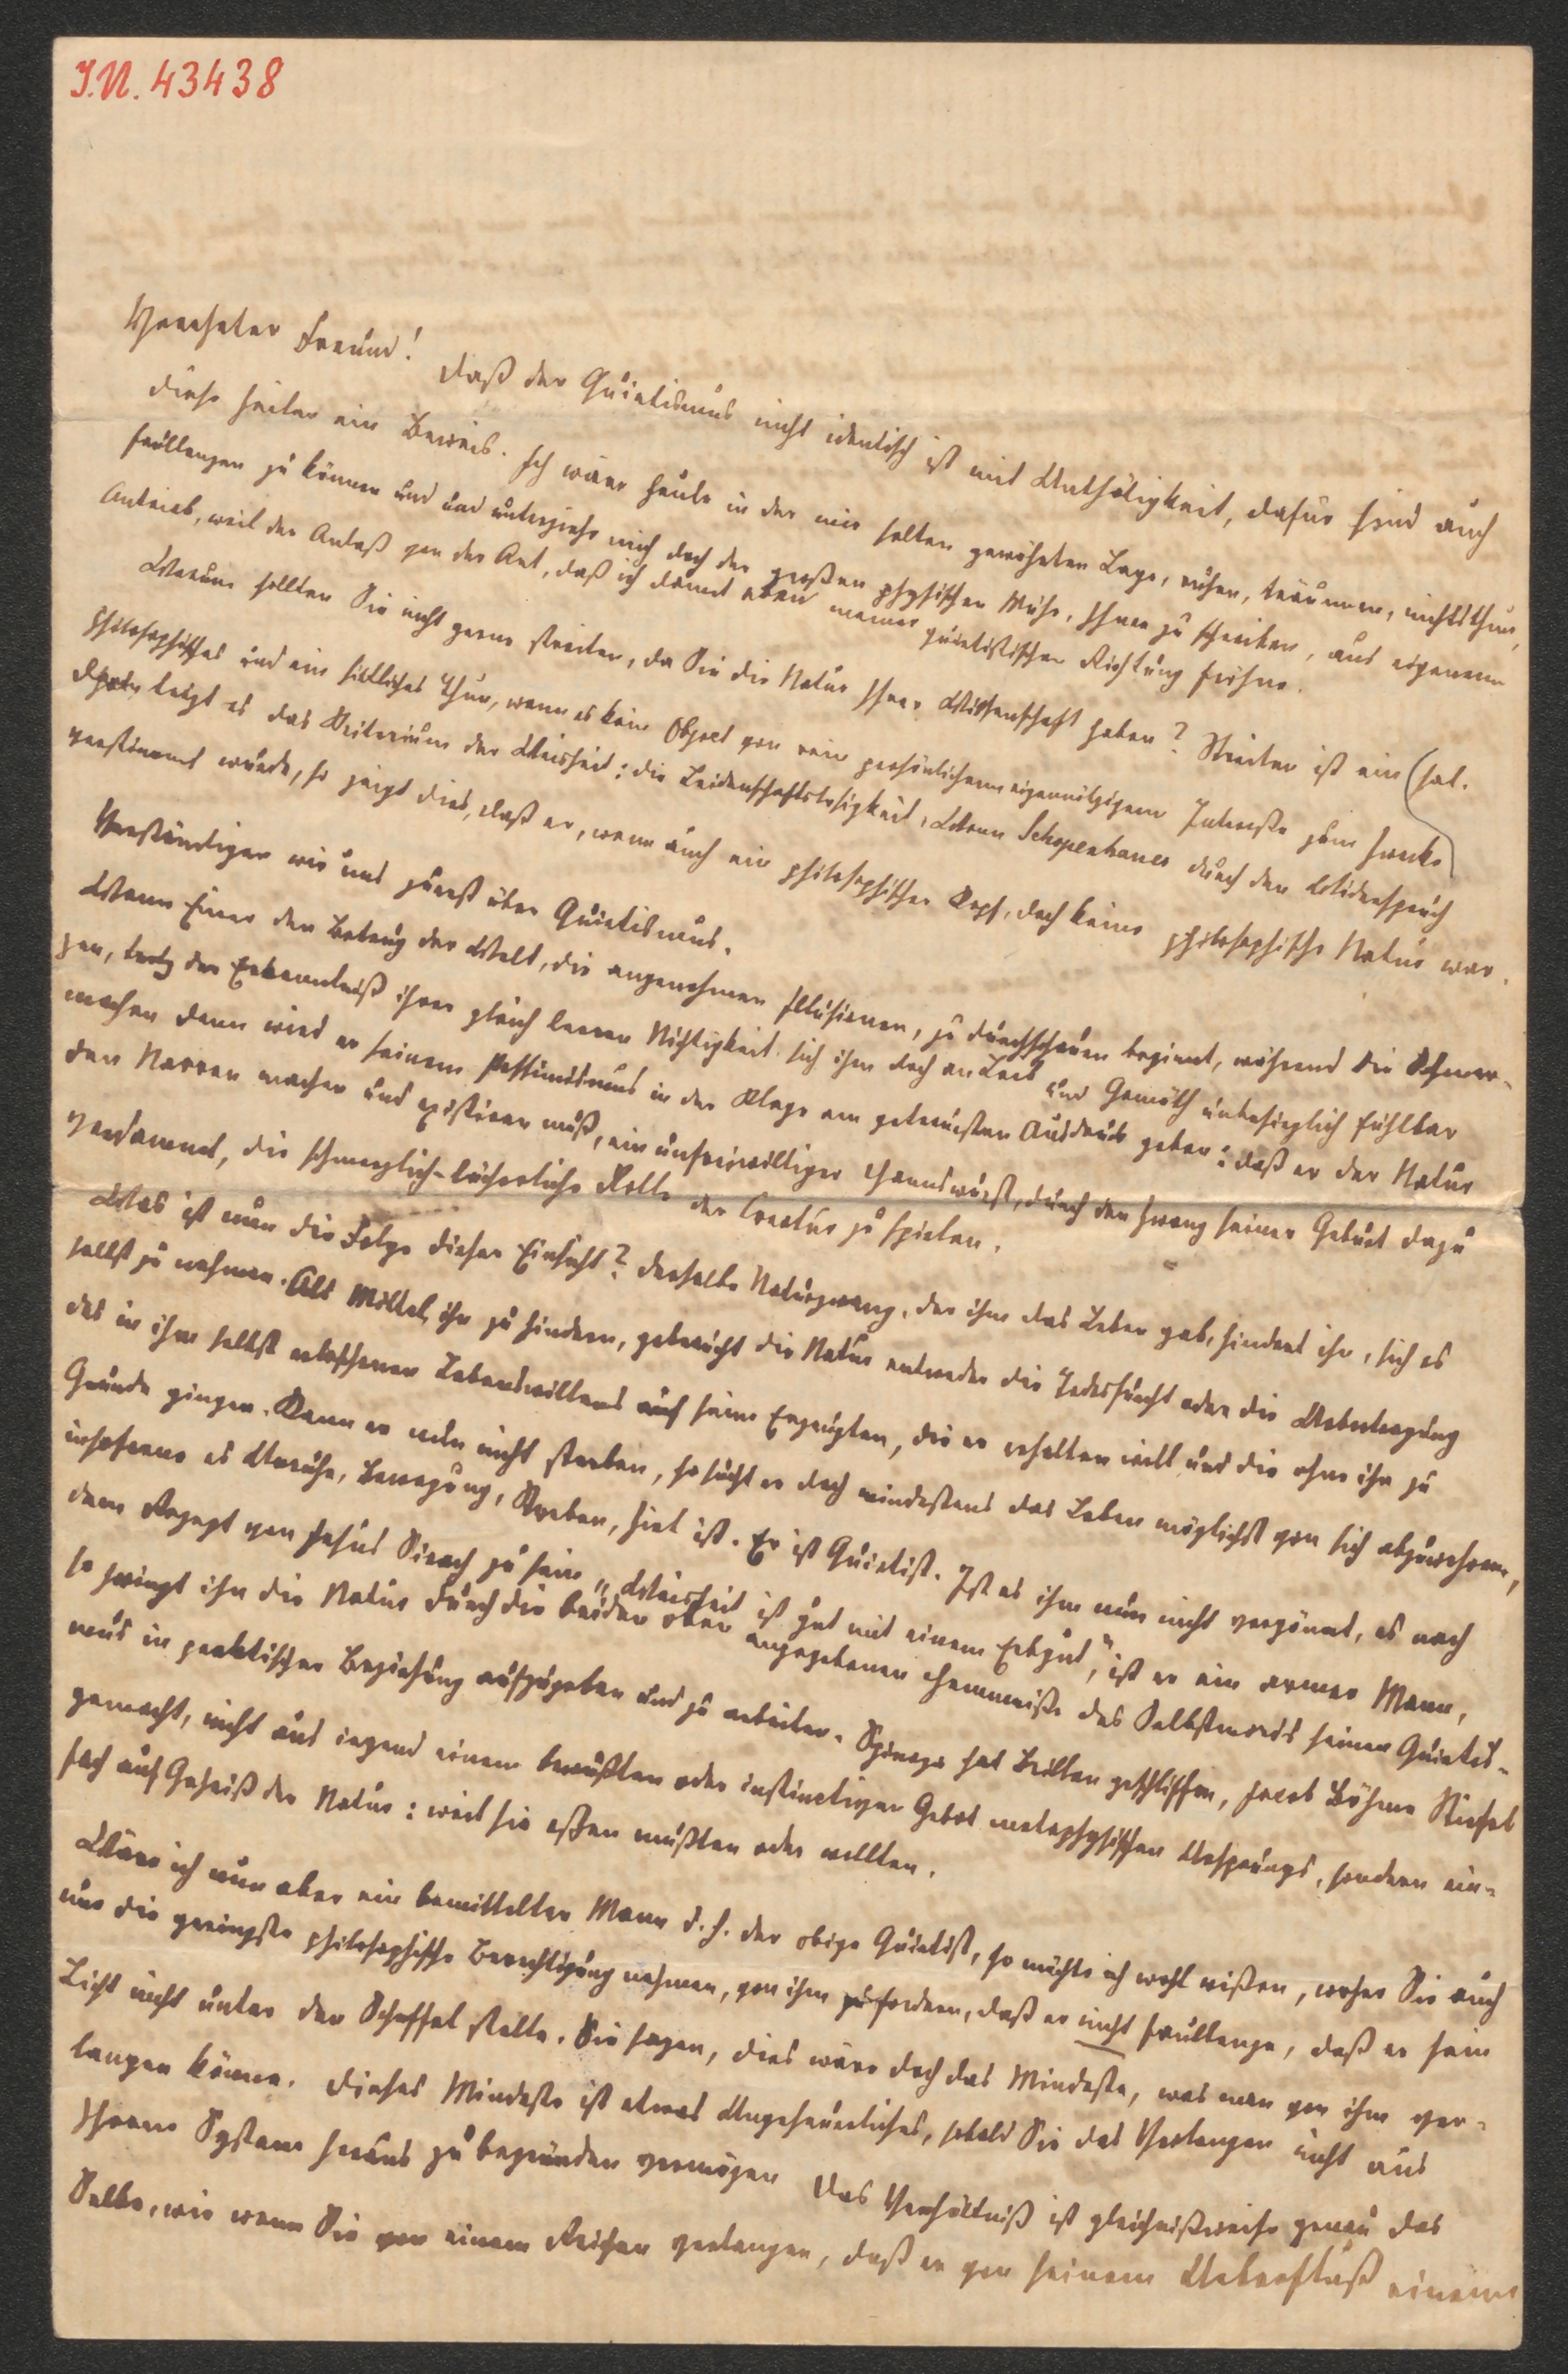 I.N. 43438
Verehrter Freund!
Daß der Quietismus nicht identisch ist mit Unthätigkeit, dafür sind auch
diese Zeilen ein Beweis. Ich wäre heute in der mir selten gewährten Lage, ruhen, träumen, nichtsthun,
faullenzen zu können und und unterziehe mich doch der großen physischen Mühe, Ihnen zu schreiben, aus eigenem
Antrieb, weil der Anlaß von der Art, daß ich damit eben meiner quietistischen Richtung fröhne.
Warum sollten Sie nicht gerne streiten, da Sie die Natur Ihrer Wissenschaft haben? Streiten ist ein (hat.
philosophisches und ein sittliches Thun, wenn es kein Object von rein persönlichem eigennützigem Interesse zum Zwecke
Darin liegt es das Kriterium der Weisheit: die Leidenschaftslosigkeit. Wenn Schopenhauer durch den Widerspruch
verstimmt wurde, so zeigt dies, daß er, wenn auch ein philosophischer Kopf, doch keine philosophische Natur war.
Verständigen wir uns zuerst über Quietismus.
Wenn Einer den Betrug der Welt, die angenehmen Illusionen, zu durchschauen beginnt, während die Schmer-
zen, trotz der Erkenntniß ihrer gleich leeren Nichtigkeit sich ihm doch an Leib und Gemüth unbesieglich fühlbar
machen dann wird er seinem Pessimismus in der Klage am getreuesten Ausdruck geben: daß er der Natur
den Narren machen und existiren muß, ein unfreiwilliger Hanswurst, durch den Zwang seiner Geburt dazu
verdammt, die schmerzlich-lächerliche Rolle der Creatur zu spielen.
Was ist nun die Folge dieser Einsicht? Derselbe Naturzwang, der ihm das Leben gab, hindert ihn, sich es
selbst zu nehmen. Als Mittel, ihn zu hindern, gebraucht die Natur entweder die Todesfurcht oder die Uebertragung
des in ihm selbst erloschenen Lebenswillens auf seine Erzeugten, die er erhalten will und die ohne ihn zu
Grunde gingen. Kann er nun nicht sterben, so sucht er doch mindestens das Leben möglichst von sich abzuwehren,
insoferne es Unruhe, Bewegung, Streben, Ziel ist. Er ist Quietist. Ist es ihm nun nicht vergönnt, es nach
dem Rezept von Jesus Sirach zu sein „Weisheit ist gut mit einem Erbgut", ist er ein armer Mann,
so zwingt ihn die Natur durch die beiden oben angegebenen Hemmniße des Selbstmords seinen Quietis-
mus in praktischer Beziehung aufzugeben und zu arbeiten. Spinoza hat Brillen geschliffen, Jacob Böhme Stiefel
gemacht, nicht aus irgend einem bewußten oder instinctiven Gebot metaphysischen Ursprungs, sondern ein-
fach auf Geheiß der Natur: weil sie eßen mußten oder wollten.
Wäre ich nun aber ein bemittelter Mann d.h. der obige Quietist, so möchte ich wohl wißen, woher Sie auch
nur die geringste philosophische Berechtigung nehmen, von ihm zu fordern, daß er nicht faullenze, daß er sein
Licht nicht unter den Scheffel stelle. Sie sagen, dies wäre doch das Mindeste, was man von ihm ver-
langen könne. Dieses Mindeste ist etwas Ungeheuerliches, sobald Sie das Verlangen nicht aus
Ihrem System heraus zu begründen vermögen Das Verhältniß ist gleichnißweise genau das
Selbe, wie wenn Sie von einem Reichen verlangen, daß er von seinem Ueberfluß einem